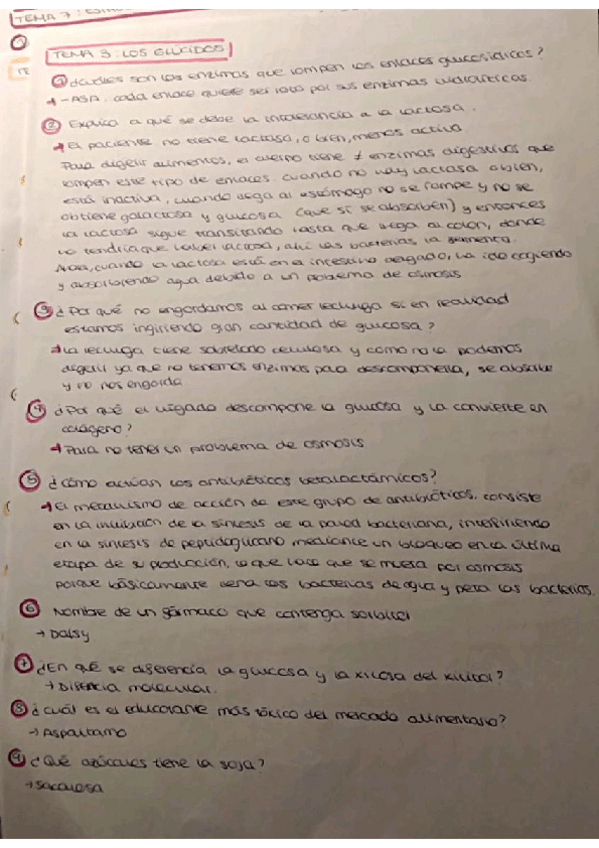 TEMA 7:
TEMA 3: LOS GLÚCIDOS
① ¿Cuáles son las enzimas que rompen los enlaces glucosídicos?
→ -ASA. cada enlace quiere ser roto por sus enzimas hidrolíticas.
② Explica a qué se debe la intolerancia a la lactosa.
→ El paciente no tiene lactasa, o bien, menos activa.
Para digerir alimentos, el cuerpo tiene ≠ enzimas digestivos que
rompen este tipo de enlaces. Cuando no hay lactasa o bien,
está inactiva, cuando llega al estómago no se rompe y no se
obtiene galactosa y glucosa (que sí se absorben) y entonces
la lactosa sigue transitando hasta que llega al colon, donde
no tendría que haber lactosa, ahí las bacterias la fermenta.
Ahora, cuando la lactosa está en el intestino delgado, ha ido cogiendo
y absorbiendo agua debido a un problema de osmosis
③ ¿Por qué no engordamos al comer lechuga si en realidad
estamos ingiriendo gran cantidad de glucosa?
→ La lechuga tiene sobretodo celulosa y como no la podemos
digerir ya que no tenemos enzimas para descomponerla, se absorbe
y no nos engorda
④ ¿Por qué el hígado descompone la glucosa y la convierte en
colágeno?
→ Para no tener un problema de osmosis
⑤ ¿Cómo actúan los antibióticos betalactámicos?
→ El mecanismo de acción de este grupo de antibióticos, consiste
en la inhibición de la síntesis de la pared bacteriana, interfiriendo
en la síntesis de peptidoglucano mediante un bloqueo en la última
etapa de su producción, lo que hace que se muera por osmosis
porque básicamente llena las bacterias de agua y peta las bacterias.
⑥ Nombre de un fármaco que contenga sorbitol
→ Dalsy
⑦ ¿En qué se diferencia la glucosa y la xilosa del xilitol?
→ Distancia molecular.
⑧ ¿Cuál es el edulcorante más tóxico del mercado alimentario?
→ Aspartamo
⑨ ¿Qué azúcares tiene la soja?
→ Sacarosa